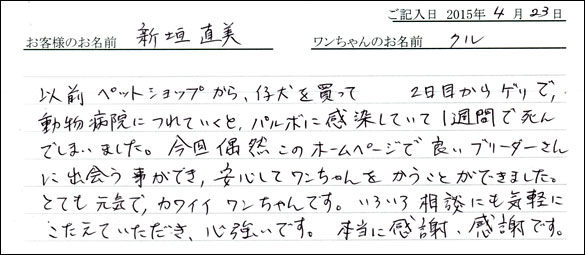 ご記入日 2015年 4月 23日
お客様のお名前 新垣 直美 ワンちゃんのお名前 クル
以前 ペットショップから、仔犬を買って 2日目からゲリで、
動物病院につれていくと、パルボに感染していて1週間で死ん
でしまいました。今回偶然このホームページで良いブリーダーさん
に出会う事ができ、安心してワンちゃんをかうことができました。
とても元気で、カワイイワンちゃんです。いろいろ相談にも気軽に
こたえていただき、心強いです。本当に感謝、感謝です。